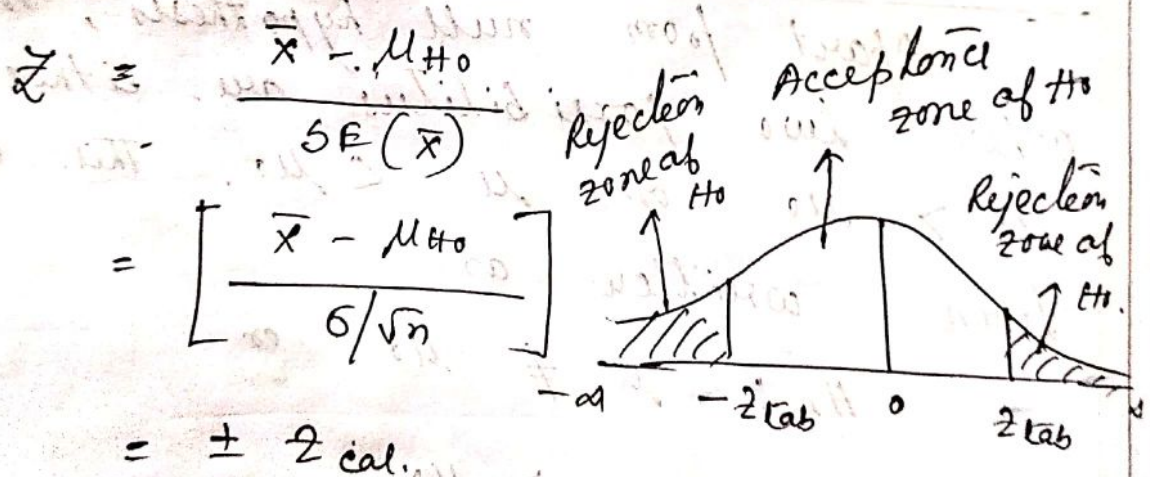 Z = x̄ - μH0 / SE(x̄)
= [ x̄ - μH0 / σ/√n ]
= ± Z cal.
Rejection
zone of
H0
Acceptance
zone of H0
Rejection
zone of
H0.
-∞ -Ztab 0 Ztab